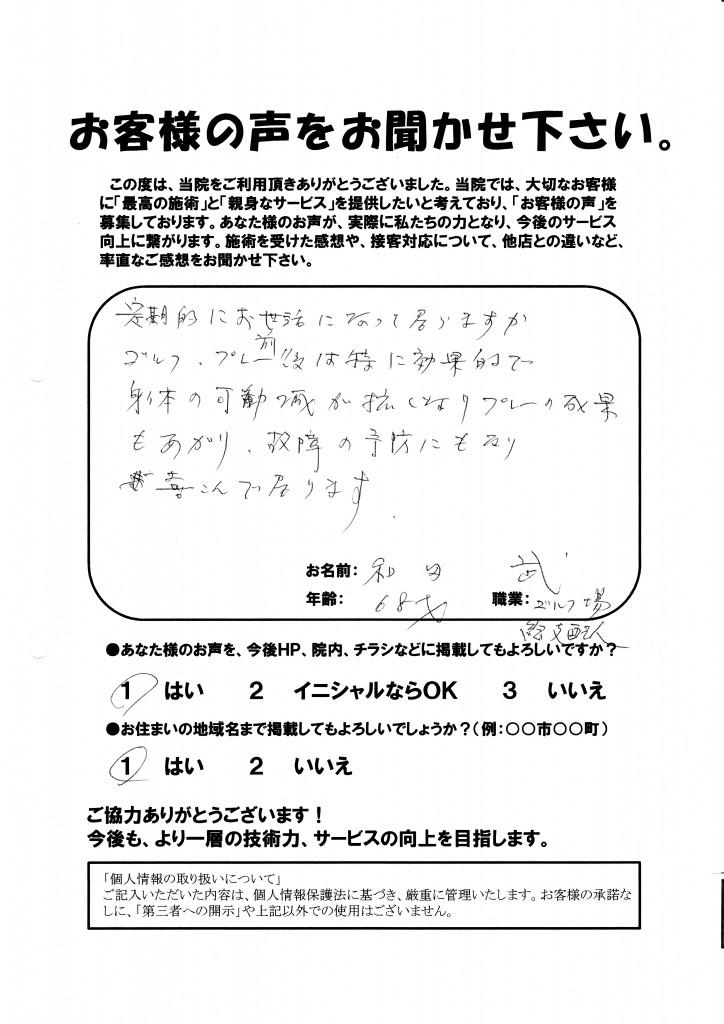 お客様の声をお聞かせ下さい。
この度は、当院をご利用頂きありがとうございました。当院では、大切なお客様
に「最高の施術」と「親身なサービス」を提供したいと考えており、「お客様の声」を
募集しております。あなた様のお声が、実際に私たちの力となり、今後のサービス
向上に繋がります。施術を受けた感想や、接客対応について、他店との違いなど、
率直なご感想をお聞かせ下さい。
定期的にお世話になって居りますが
ゴルフ、プレー前後は特に効果的で
身体の可動域が拡くなりプレーの成果
もあがり、故障の予防にもなり
喜こんで居ります.
お名前: 和田 武
年齢: 68才 職業: ゴルフ場
総支配人
●あなた様のお声を、今後HP、院内、チラシなどに掲載してもよろしいですか?
1 はい 2 イニシャルならOK 3 いいえ
●お住まいの地域名まで掲載してもよろしいでしょうか?(例:○○市○○町)
1 はい 2 いいえ
ご協力ありがとうございます!
今後も、より一層の技術力、サービスの向上を目指します。
「個人情報の取り扱いについて」
ご記入いただいた内容は、個人情報保護法に基づき、厳重に管理いたします。お客様の承諾な
しに、「第三者への開示」や上記以外での使用はございません。